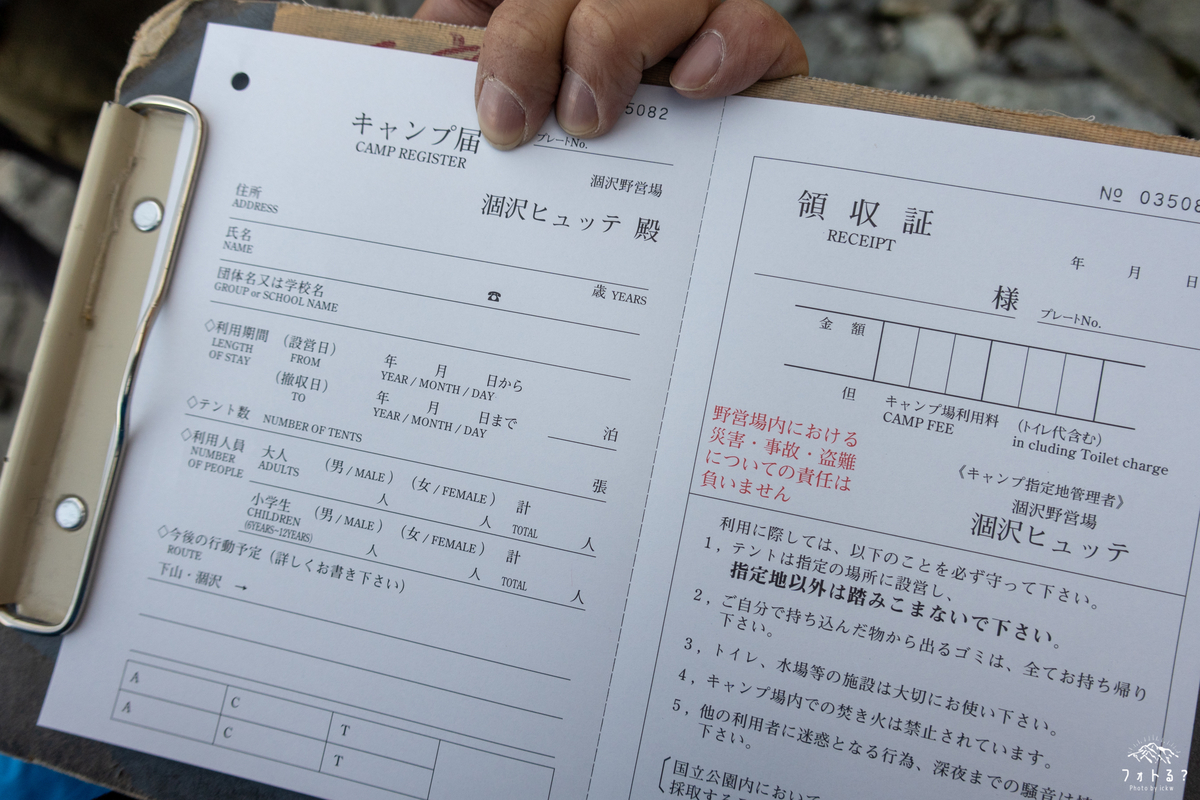 5082
キャンプ届
CAMP REGISTER
プレートNo.
涸沢野営場
涸沢ヒュッテ 殿
住所
ADDRESS
氏名
NAME
歳 YEARS
団体名又は学校名
GROUP or SCHOOL NAME
☎
◇利用期間 (設営日) 年 月 日から
LENGTH OF STAY FROM YEAR / MONTH / DAY
(撤収日) 年 月 日まで 泊
TO YEAR / MONTH / DAY
◇テント数 NUMBER OF TENTS 張
◇利用人員 大人 (男 / MALE) (女 / FEMALE) 計
NUMBER OF PEOPLE ADULTS 人 人 TOTAL 人
小学生 (男 / MALE) (女 / FEMALE) 計
CHILDREN
(6YEARS~12YEARS) 人 人 TOTAL 人
◇今後の行動予定 (詳しくお書き下さい)
ROUTE
下山・涸沢 →
A C T
A C T
№ 03508
領収証
RECEIPT
年 月 日
様
プレートNo.
金額
但 キャンプ場利用料 (トイレ代含む)
CAMP FEE in cluding Toilet charge
野営場内における
災害・事故・盗難
についての責任は
負いません
《キャンプ指定地管理者》
涸沢野営場
涸沢ヒュッテ
利用に際しては、以下のことを必ず守って下さい。
1, テントは指定の場所に設営し、
指定地以外は踏みこまないで下さい。
2, ご自分で持ち込んだ物から出るゴミは、全てお持ち帰り
下さい。
3, トイレ、水場等の施設は大切にお使い下さい。
4, キャンプ場内での焚き火は禁止されています。
5, 他の利用者に迷惑となる行為、深夜までの騒音は
下さい。
国立公園内において
採取する
フォトる?
Photo by ickw